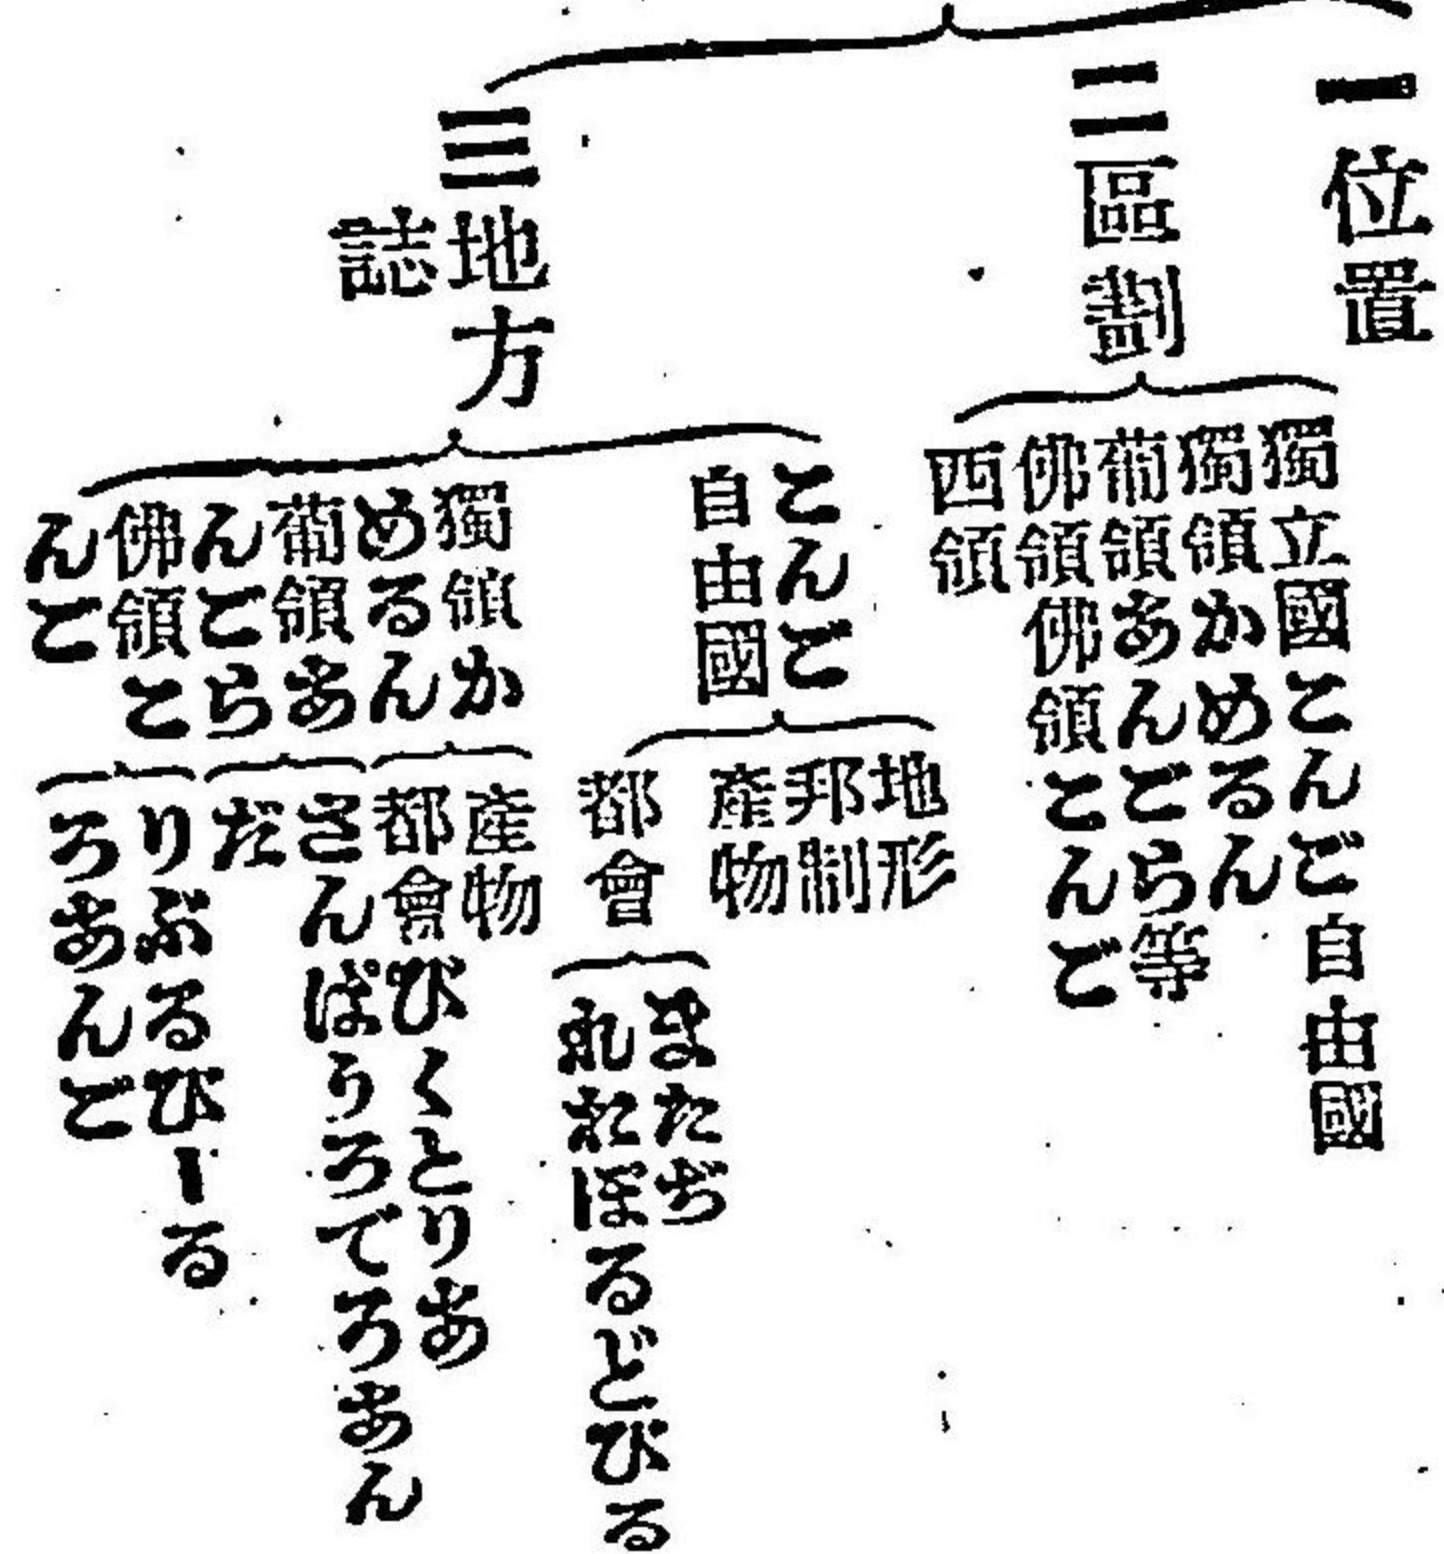 一位置
二區劃
獨立國こんご自由國
獨領かめるん
葡領あんごら等
佛領佛領こんご
西領
三地方
誌
こんご
自由國
地形
邦制
產物
都會
またぢ
れおぽるどびる
獨領か
めるん
產物
都會びくとりあ
葡領あ
んごら
さんぽうろでろあん
だ
佛領こ
んご
りぶるびーる
ろあんご